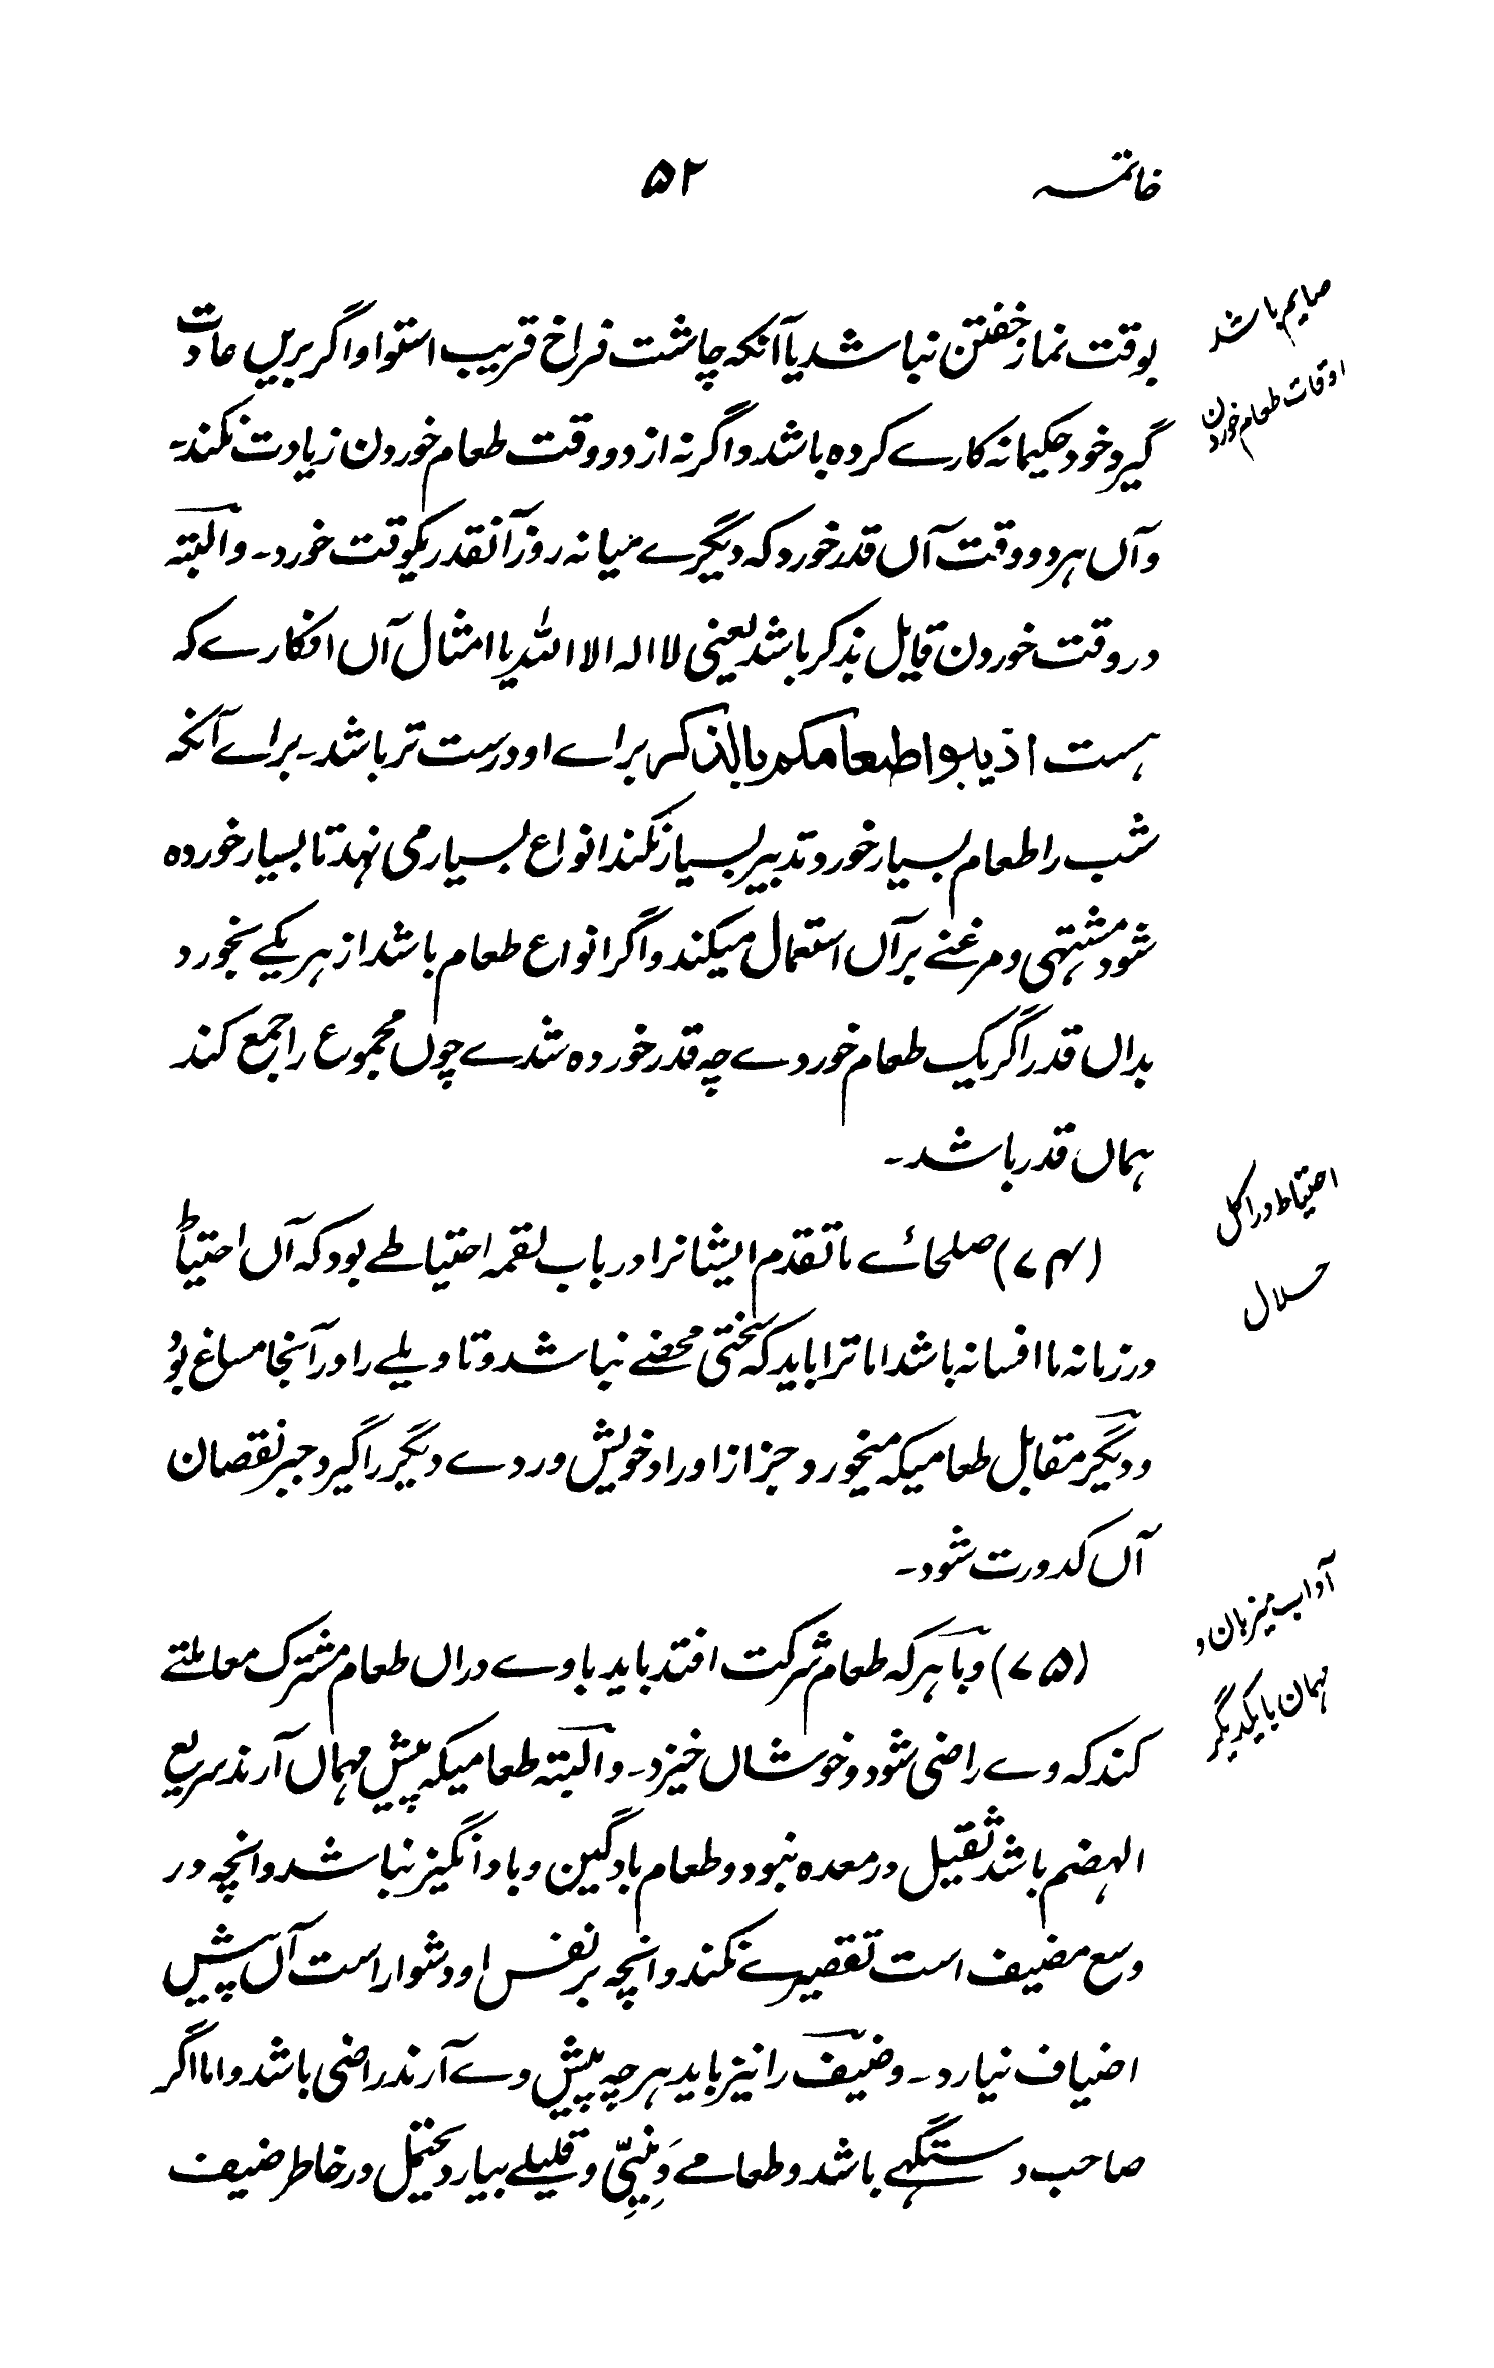 خاتمہ
۵۲
صایم باشد
بوقت نماز خفتن نباشد یا آنکہ چاشت فراخ قریب استوا و اگر بریں عادت
اوقات طعام خوردن
گیرد خود حکیمانہ کارے کردہ باشد و اگر نہ از دو وقت طعام خوردن زیادت نکند۔
و آں ہر دو وقت آں قدر خورد کہ دیگرے میانہ روز آنقدر یکوقت خورد۔ و البتہ
در وقت خوردن قایل بذکر باشد یعنی لا الہ الا اللہ یا امثال آں افکارے کہ
ہست اذیبوا طعامکم بالذکر براے او درست تر باشد۔ براے آنکہ
شب را طعام بسیار خورد تدبیر بسیار نکند انواع بسیار می نہد تا بسیار خوردہ
شود مشتہی و مرغنے بر آں استعمال میکند و اگر انواع طعام باشد از ہر یکے بخورد
بداں قدر اگر یک طعام خوردے چہ قدر خوردہ شدے چوں مجموع را جمع کند
ہماں قدر باشد۔
احتیاط در اکل
حلال
(۷۴) صلحائے ما تقدم ایشانرا در باب لقمہ احتیاطے بود کہ آں احتیاط
در زمانہ ما افسانہ باشد اما ترا باید کہ سختی محضے نباشد و تاویلے را در آنجا مساغ بود
و دیگر مقابل طعامیکہ میخورد جز از اوراد خویش وردے دیگر را گیرد جبر نقصان
آں کدورت شود۔
آداب میزبان و
مہمان با یکدیگر
(۷۵) و با ہر کہ طعام شرکت افتد باید با وے دراں طعام مشترک معاملتے
کند کہ وے راضی شود و خوشاں خیزد۔ و البتہ طعامیکہ پیش مہماں آرند سریع
الہضم باشد ثقیل در معدہ نبود و طعام بادگین و باد انگیز نباشد و انچہ در
وسع مضیف است تقصیرے نکند و انچہ بر نفس او دشوار است آں پیش
اضیاف نیارد۔ و ضیف را نیز باید ہر چہ پیش وے آرند راضی باشد و اما اگر
صاحب دستگہے باشد و طعامے دَنِیِّی و قلیلے بیارد یحتمل در خاطر ضیف